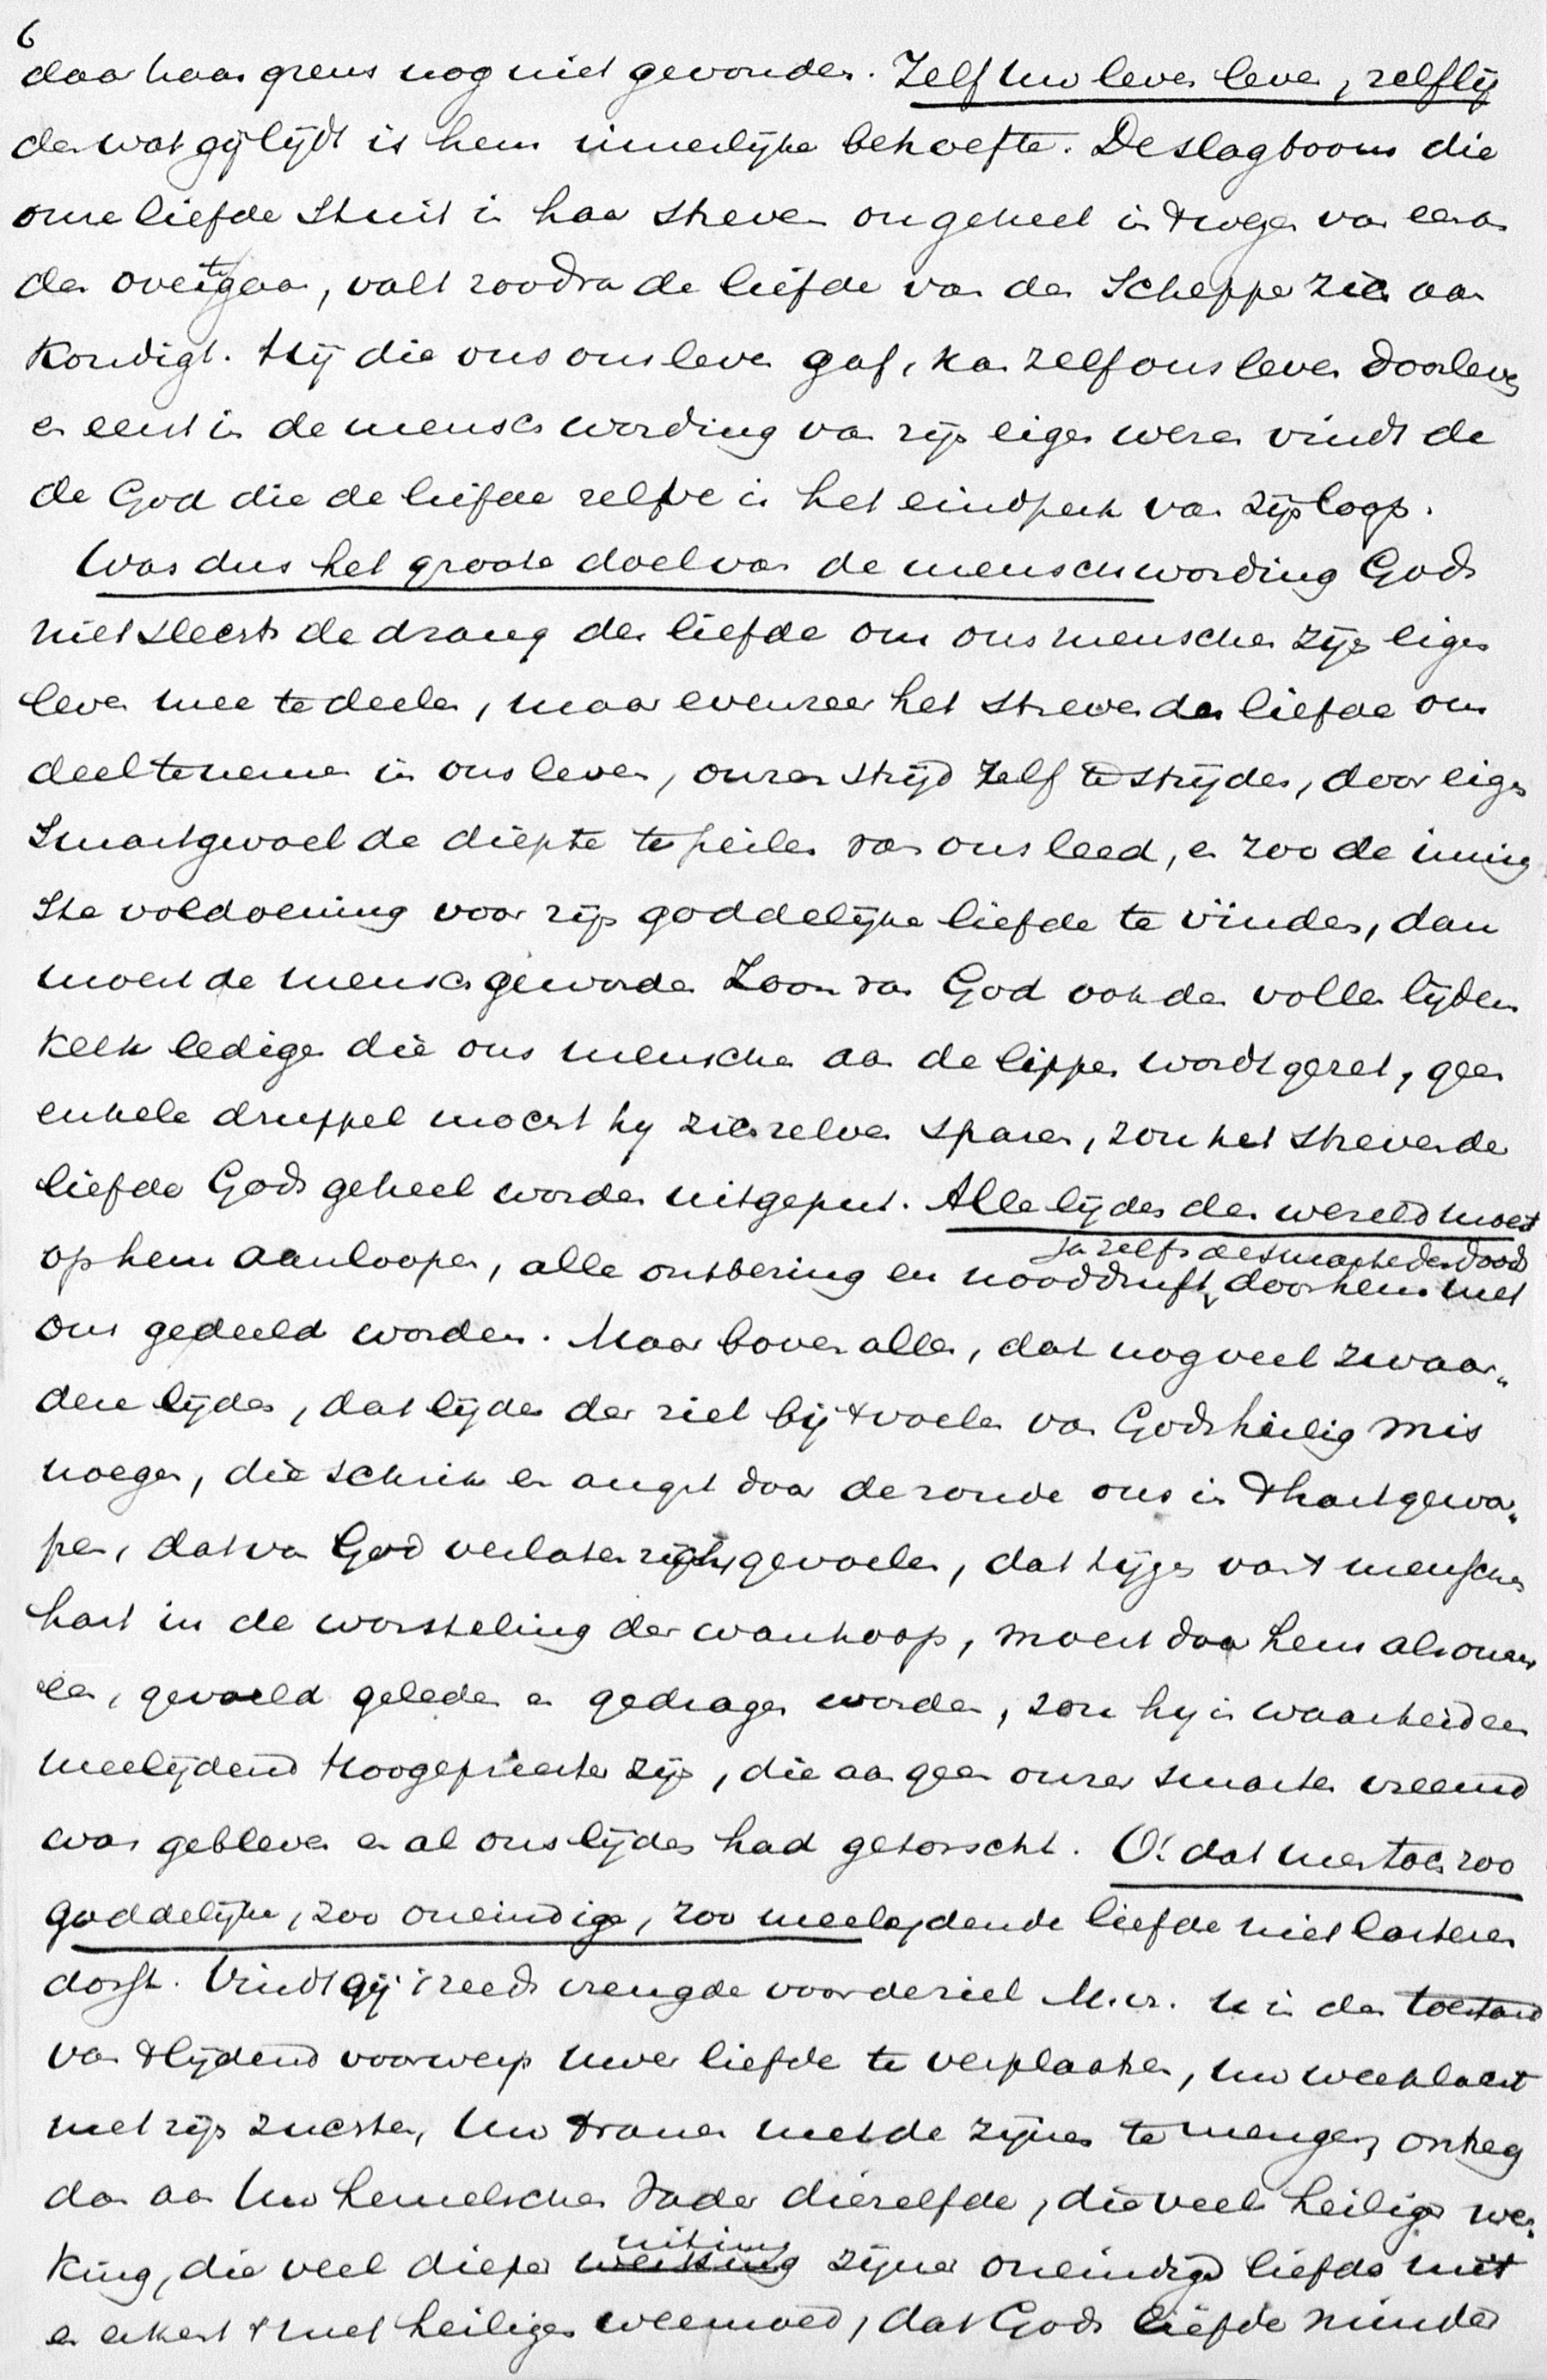 6
daar haar grens nog niet gevonden. Zelf uw leven leven, zelf lij
den wat gij lijdt is hem innerlijke behoefte. De slagboom die
onze liefde stuit in haar streven om geheel in 't wezen van een an
der over te gaan, valt zoodra de liefde van den Schepper zich aan
kondigt. Hij die ons ons leven gaf, kan zelf ons leven doorleven
en eerst in de menschwording van zijn eigen wezen vindt de
de God die de liefde zelve is het eindperk van zijn loop.
Was dus het groote doel van de menschwording Gods
niet slechts de drang der liefde om ons menschen zijn eigen
leven mee te deelen, maar evenzeer het streven der liefde om
deel te nemen in ons leven, onzen strijd zelf te strijden, door eigen
smartgevoel de diepte te peilen van ons leed, en zoo de innig
ste voldoening voor zijn goddelijke liefde te vinden, dan
moest de menschgeworden Zoon van God ook den vollen lijdens
kelk ledigen die ons menschen aan de lippen wordt gezet, geen
enkele druppel mocht hij zich zelven sparen, zou het streven der
liefde Gods geheel worden uitgeput. Alle lijden der wereld moest
op hem aanloopen, alle ontbering en nooddruft, ja zelfs de smarte des doods door hem met
ons gedeeld worden. Maar boven allen, dat nog veel zwaar„
der lijden, dat lijden der ziel bij 't voelen van Gods heilig mis
noegen, die schrik en angst door de zonde ons in 't hart gewor„
pen, dat van God verlaten zijn gevoelen, dat hijgen van 't menschen
hart in de worsteling der wanhoop, moest door hem als onzer
een, gevoeld geleden en gedragen worden, zou hij in waarheid een
meelijdend Hoogepriester zijn, die aan geen onzer smarten vreemd
was gebleven en al ons lijden had getorscht. O! dat men toch zoo
goddelijke, zoo oneindige, zoo meelijdende liefde niet lasteren
dorst. Vindt gij 't reeds vreugde voor de ziel M.vr. U in den toestand
van 't lijdend voorwerp uwer liefde te verplaatsen, uw weeklacht
met zijn zuchten, uw tranen met de zijnen te mengen, ontzeg
dan aan Uw hemelschen Vader diezelfde, die veel heiliger wer„
king, die veel dieper uiting zijner oneindige liefde niet
en erkent 't met heiligen weemoed, dat Gods liefde minder